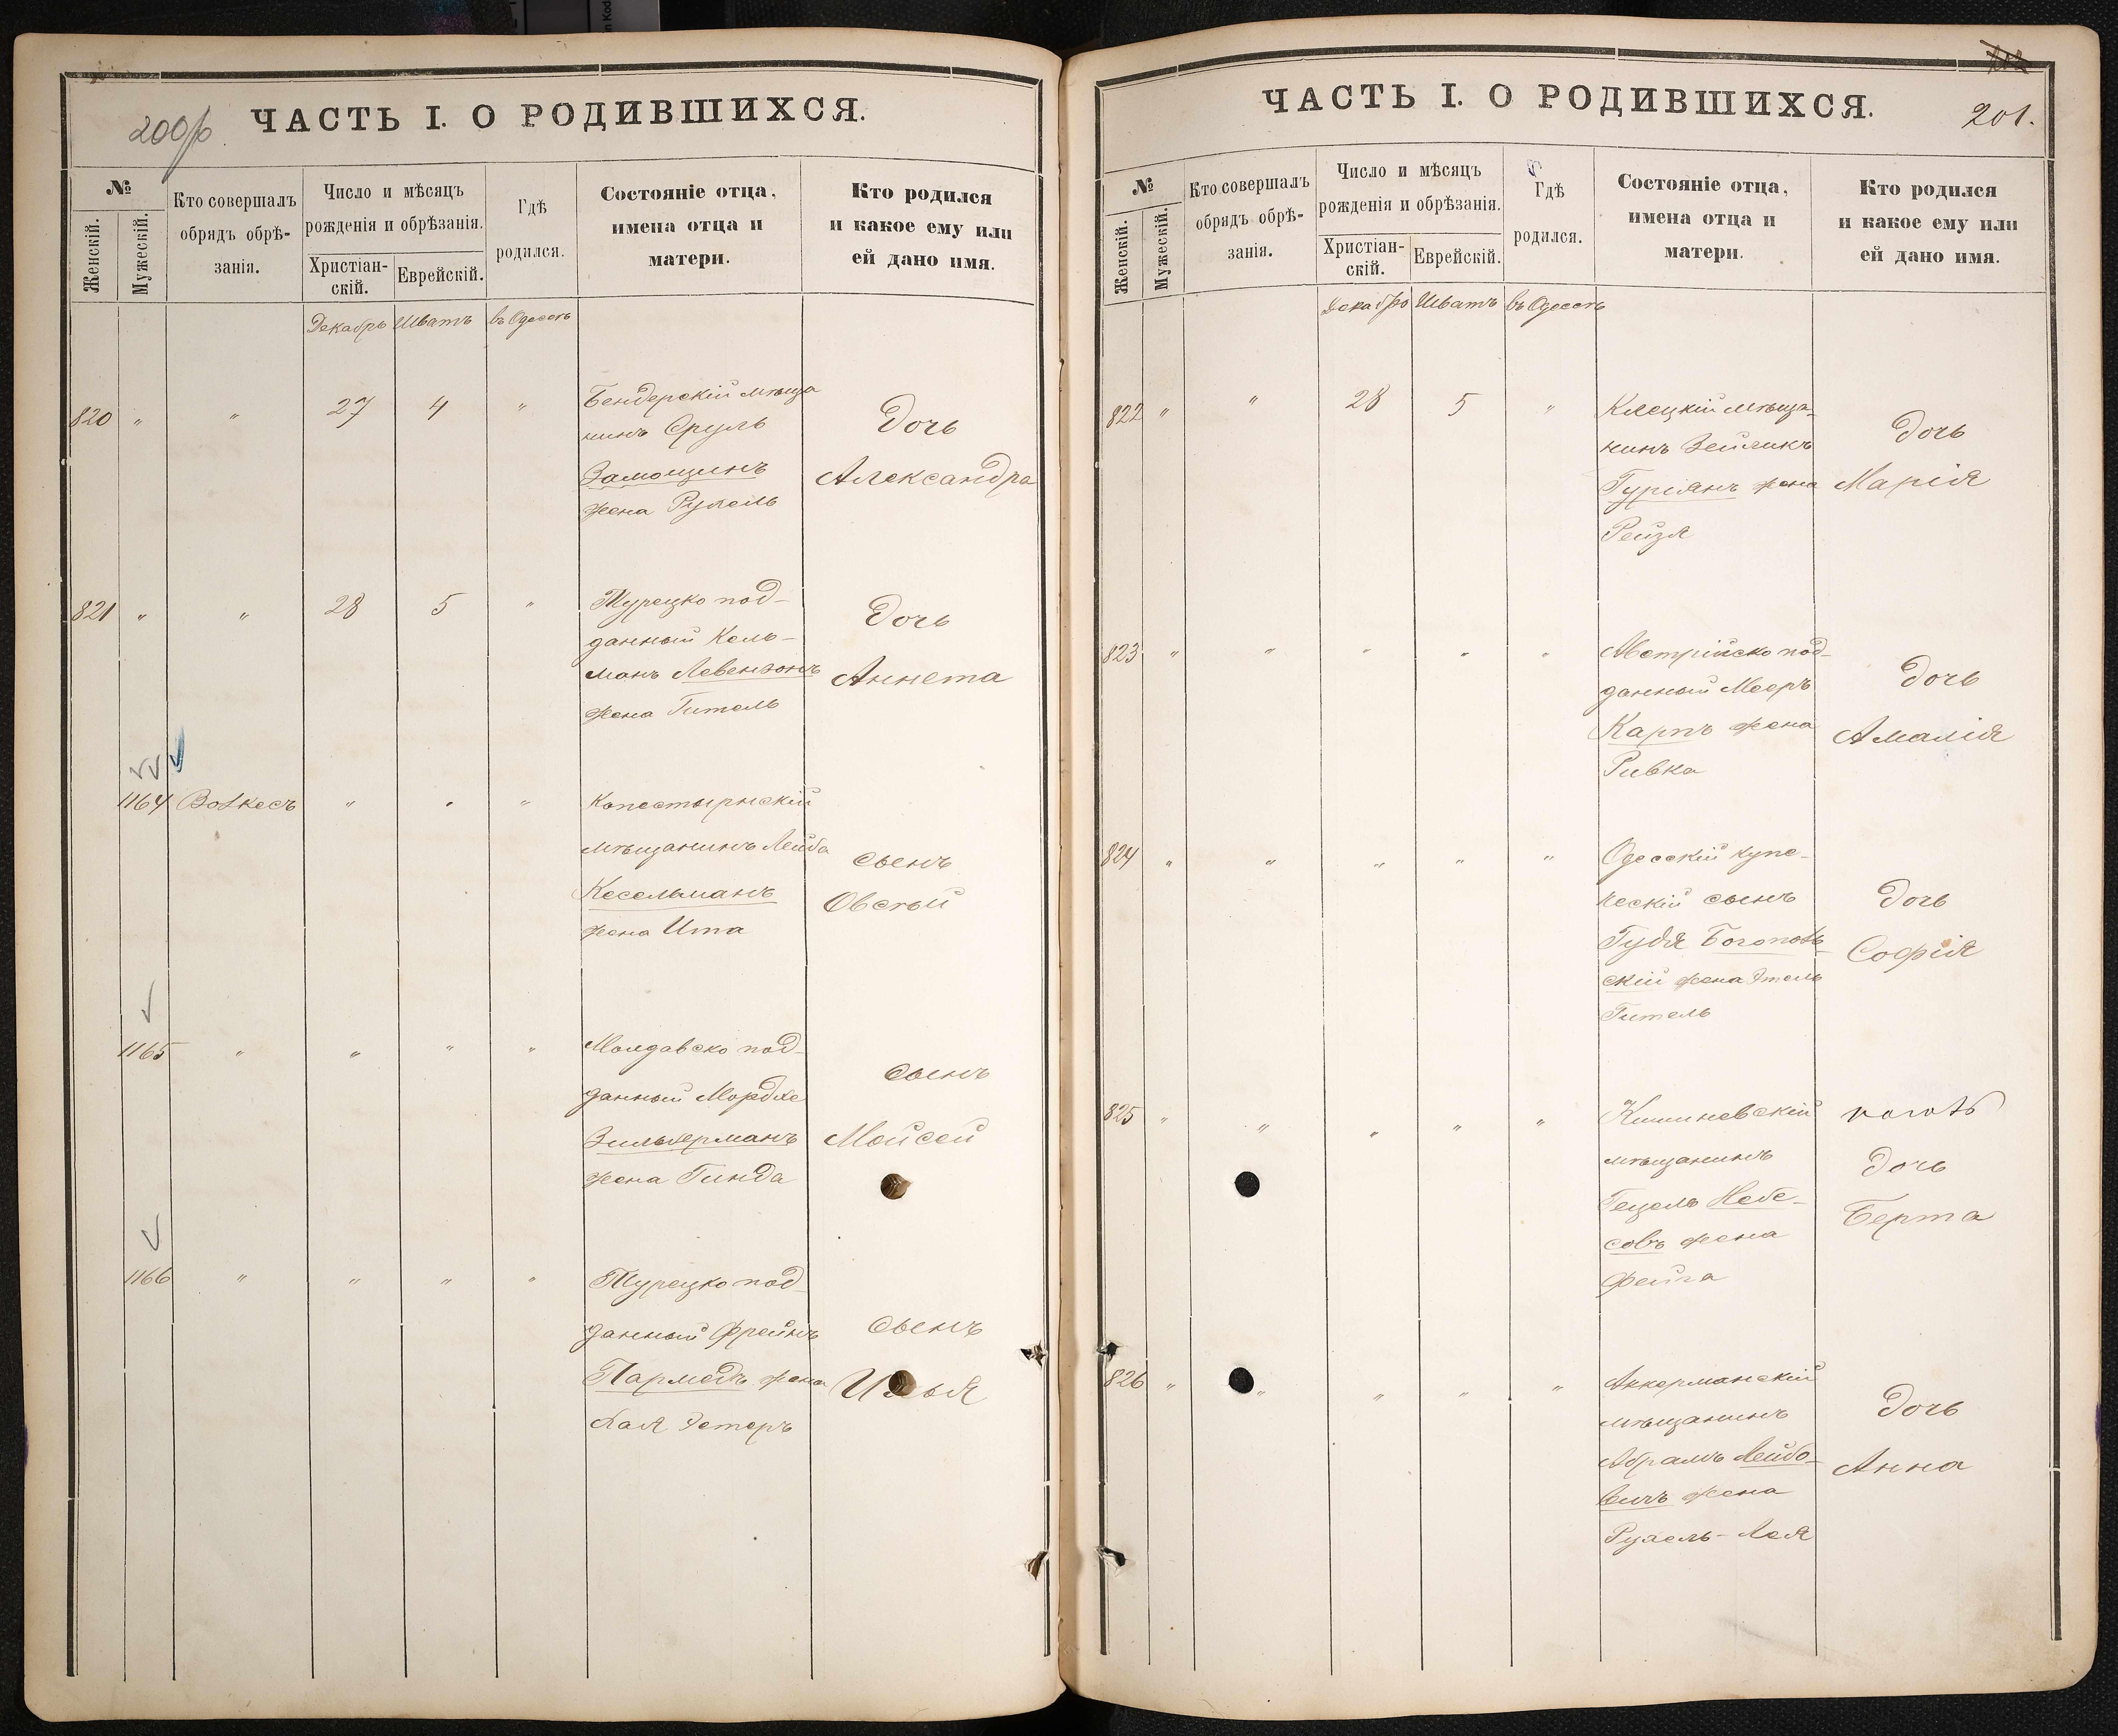 200 об
ЧАСТЬ I. О РОДИВШИХСЯ.
№
Женскій.
Мужескій.
Кто совершалъ
обрядъ обрѣ-
занія.
Число и мѣсяцъ
рожденія и обрѣзанія.
Христіан-
скій.
Еврейскій.
Гдѣ
родился.
Состояніе отца,
имена отца и
матери.
Кто родился
и какое ему или
ей дано имя.
Декабрь Шватъ въ Одессѣ
820 " " 27 4 "
Бендерскій мѣща
нинъ Сруль
Замощинъ
жена Рухель
Дочь
Александра
821 " " 28 5 "
Турецко под-
данный Кель-
манъ Левензонъ
жена Гитель
Дочь
Аннета
1164 Волкесъ " " "
Капестырнскій
мѣщанинъ Лейба
Кесельманъ
жена Ита
Сынъ
Овсѣй
1165 " " " "
Молдавско под-
данный Мордхе
Зильберманъ
жена Гинда
Сынъ
Мойсей
1166 " " " "
Турецко под-
данный Фроимъ
Пармедъ жена
Хая Эстеръ
Сынъ
Илья
ЧАСТЬ I. О РОДИВШИХСЯ.
201.
№
Женскій.
Мужескій.
Кто совершалъ
обрядъ обрѣ-
занія.
Число и мѣсяцъ
рожденія и обрѣзанія.
Христіан-
скій.
Еврейскій.
Гдѣ
родился.
Состояніе отца,
имена отца и
матери.
Кто родился
и какое ему или
ей дано имя.
Декабрь Шватъ въ Одессѣ
822 " " 28 5 "
Клецкій мѣща-
нинъ Зейликъ
Гурianъ жена
Рейзя
Дочь
Марія
823 " " " " "
Австрійско под-
данный Мееръ
Карпъ жена
Ривка
Дочь
Амалія
824 " " " " "
Одесскій купе-
ческій сынъ
Гудя Богополь-
скій жена Этель
Гитель
Дочь
Софія
825 " " " " "
Кишиневскій
мѣщанинъ
Гецель Небе-
совъ жена
Фейга
Дочь
Берта
826 " " " " "
Аккерманскій
мѣщанинъ
Абрамъ Лейбо-
вичъ жена
Рухель-Лея
Дочь
Анна